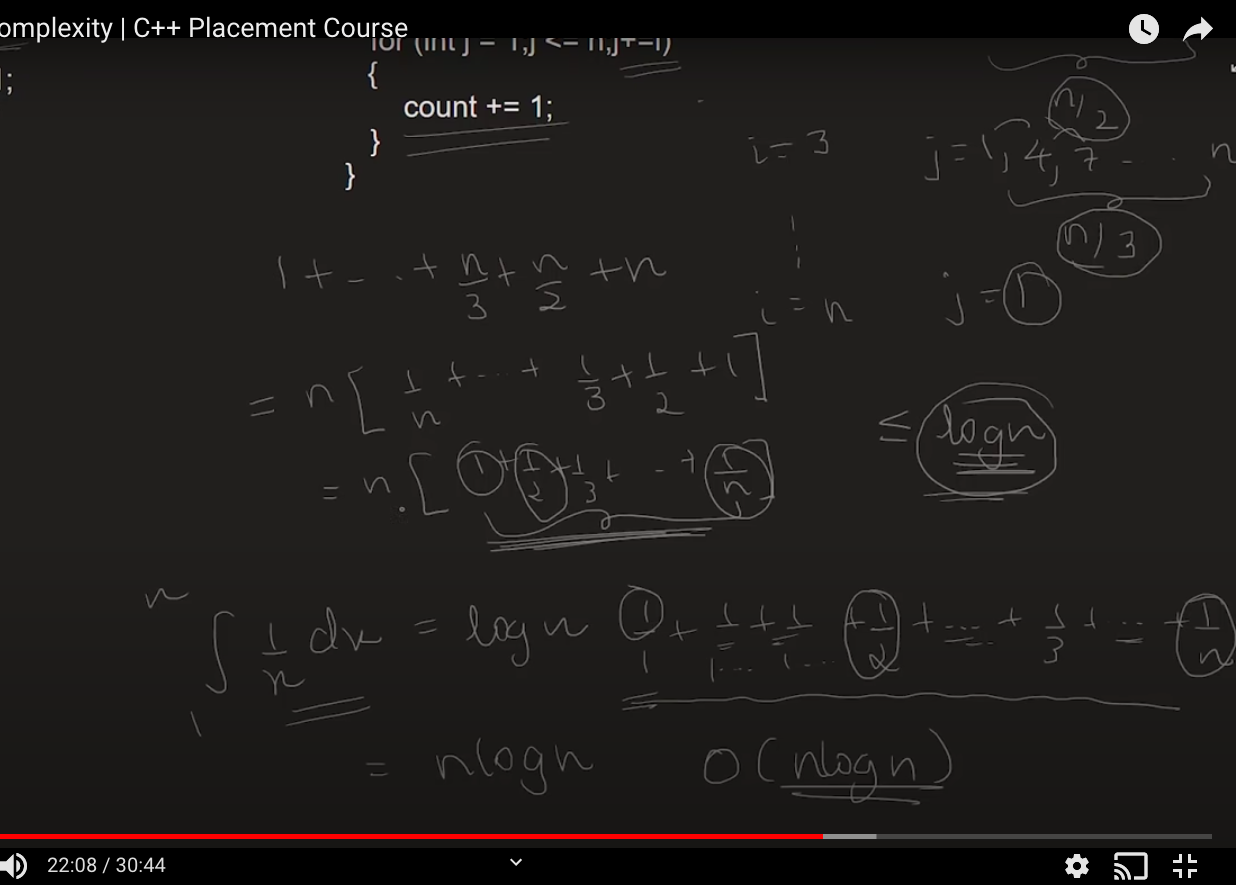 omplexity | C++ Placement Course
for (int j = 1;j <= n;j+=i)
1;
{
count += 1;
}
}
n/2
i = 3 j = 1, 4, 7 - . . n
n/3
1 + - . . + n/3 + n/2 + n
i = n j = 1
= n [ 1/n + - .. + 1/3 + 1/2 + 1 ]
≤ logn
= n . [ 1 + 1/2 + 1/3 + . - + 1/n ]
n
∫ 1/x dx = log n 1/1 + 1/1... + 1/1.... + 1/2 + ... + 1/3 + ... + 1/n
1
= nlogn O(nlogn)
22:08 / 30:44